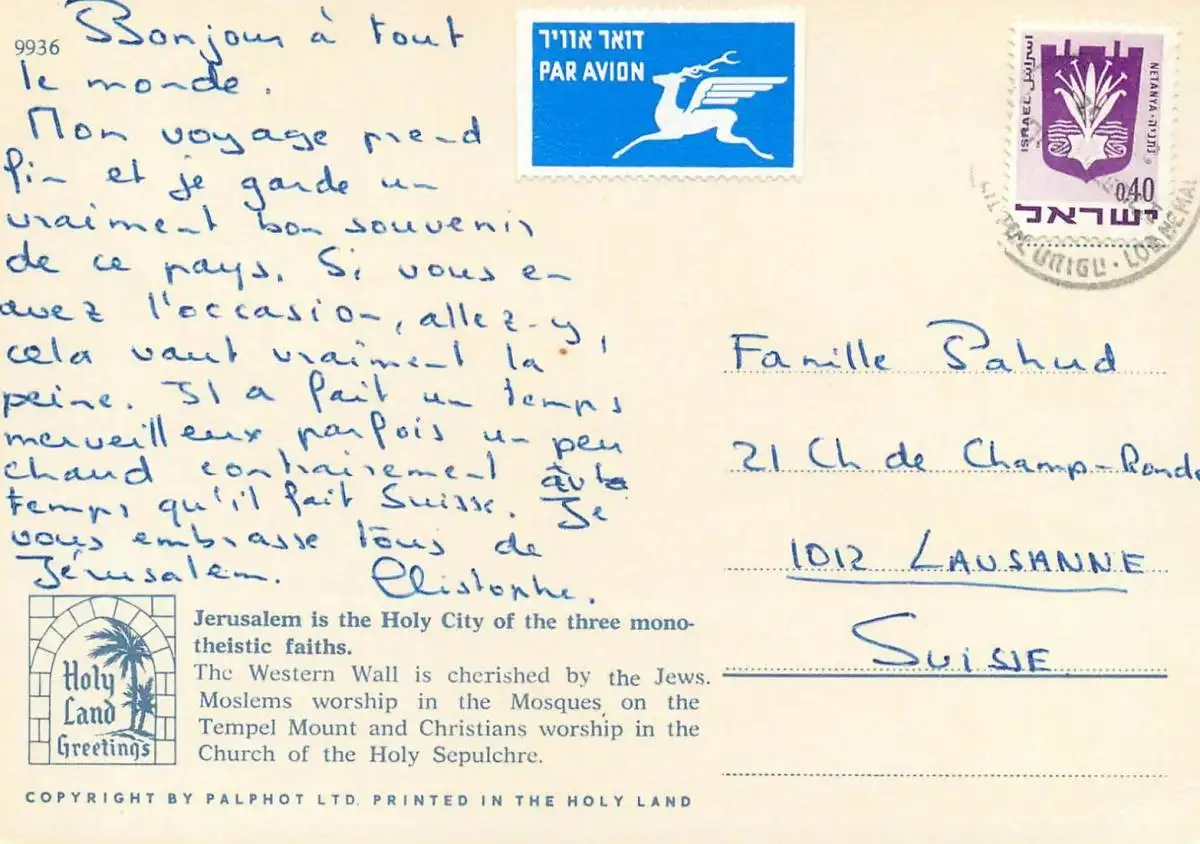 9936
Bonjour à tout
le monde.
Mon voyage prend
fin et je garde un
vraiment bon souvenir
de ce pays. Si vous en
avez l'occasion, allez-y,
cela vaut vraiment la
peine. Il a fait un temps
merveilleux parfois un peu
chaud contrairement
temps qu'il fait Suisse. Je
vous embrasse tous de
Jérusalem. Christophe.
דואר אוויר
PAR AVION
ISRAEL اسرائيل
NETANYA · נתניה
0.40
ישראל
Famille Pahud
21 Ch de Champ-Rond
1012 LAUSANNE
SUISSE
Holy
Land
Greetings
Jerusalem is the Holy City of the three mono-
theistic faiths.
The Western Wall is cherished by the Jews.
Moslems worship in the Mosques on the
Tempel Mount and Christians worship in the
Church of the Holy Sepulchre.
COPYRIGHT BY PALPHOT LTD. PRINTED IN THE HOLY LAND